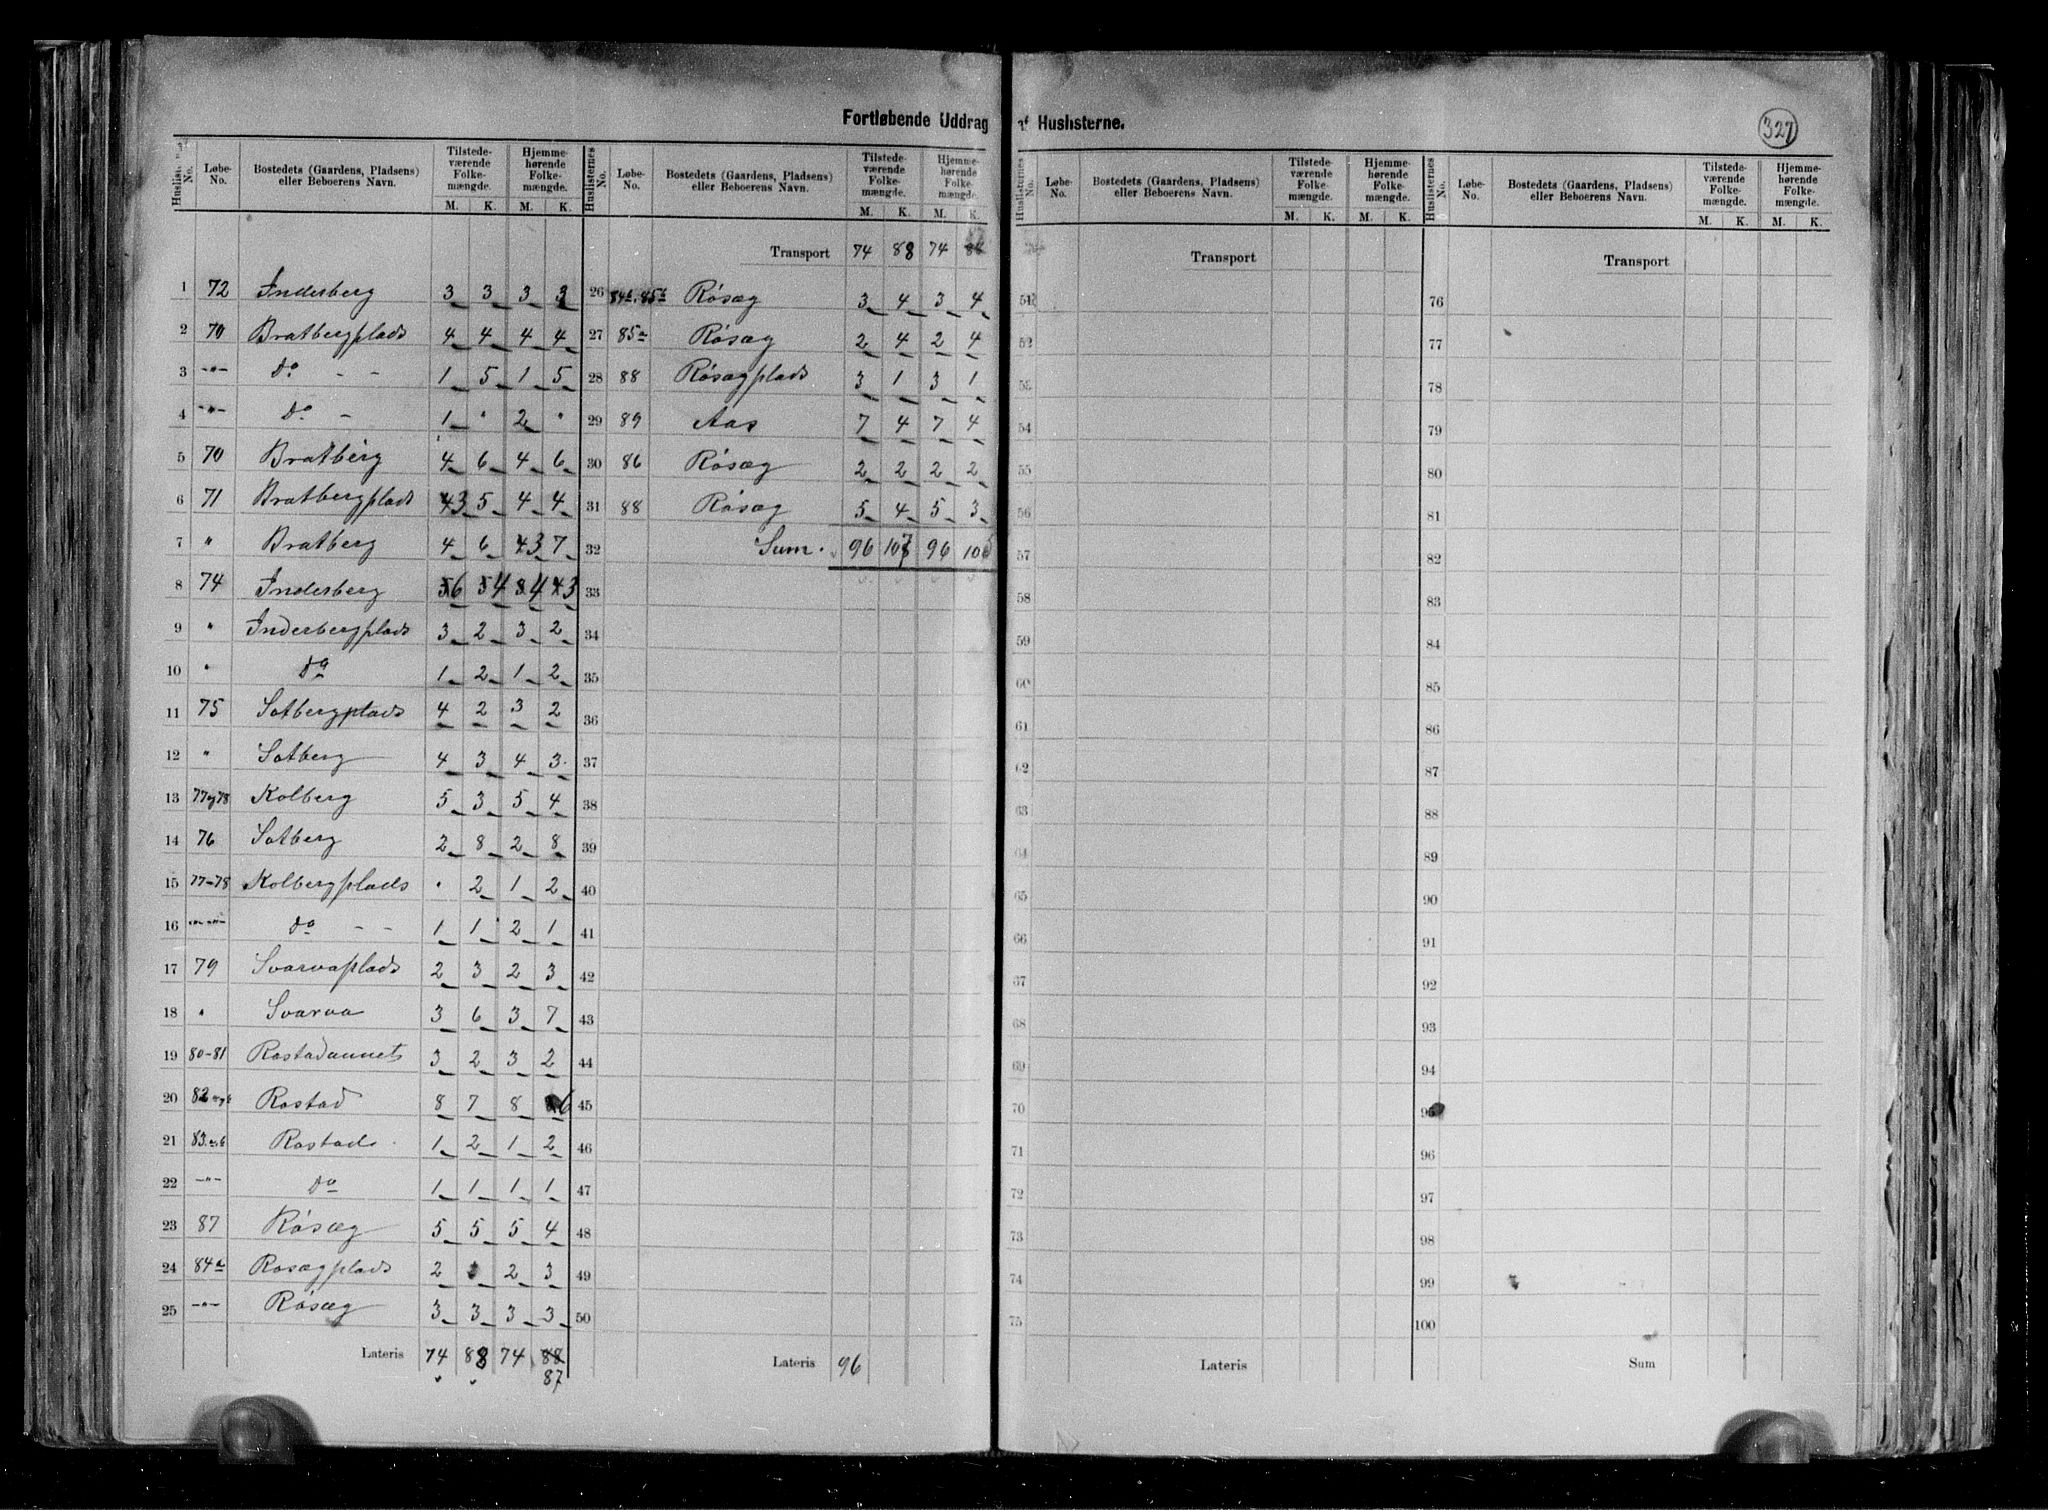 Fortløbende Uddrag af Huslisterne.
327
Huslisternes No. Løbe-No. Bostedets (Gaardens, Pladsens) eller Beboerens Navn. Tilstedeværende Folkemængde. M. K. Hjemmehørende Folkemængde. M. K.
1 72 Inderberg 3 3 3 3
2 70 Bratbergplads 4 4 4 4
3 -"- do - - 1 5 1 5
4 -"- do - 1 " 2 "
5 70 Bratberg 4 6 4 6
6 71 Bratbergplads 3 5 4 4
7 " Bratberg 4 6 3 7
8 74 Inderberg 6 4 4 3
9 " Inderbergplads 3 2 3 2
10 " do 1 2 1 2
11 75 Sotbergplads 4 2 3 2
12 " Sotberg 4 3 4 3
13 77og78 Kolberg 5 3 5 4
14 76 Sotberg 2 8 2 8
15 77-78 Kolbergplads " 2 1 2
16 -"- -"- do - - 1 1 2 1
17 79 Svarvaplads 2 3 2 3
18 " Svarva 3 6 3 7
19 80-81 Rostadaunet 3 2 3 2
20 82 Rostad 8 7 8 6
21 83 Rostad 1 2 1 2
22 -"- do 1 1 1 1
23 87 Røsæg 5 5 5 4
24 84a Rosægplads 2 2 3
25 -"- Røsæg 3 3 3 3
Lateris 74 88 74 88
87
Huslisternes No. Løbe-No. Bostedets (Gaardens, Pladsens) eller Beboerens Navn. Tilstedeværende Folkemængde. M. K. Hjemmehørende Folkemængde. M. K.
Transport 74 88 74
26 84b, 85b Røsæg 3 4 3 4
27 85a Røsæg 2 4 2 4
28 88 Røsægplads 3 1 3 1
29 89 Aas 7 4 7 4
30 86 Røsæg 2 2 2 2
31 88 Røsæg 5 4 5 3
32 Sum. 96 107 96 105
33
34
35
36
37
38
39
40
41
42
43
44
45
46
47
48
49
50
Lateris 96
Huslisternes No. Løbe-No. Bostedets (Gaardens, Pladsens) eller Beboerens Navn. Tilstedeværende Folkemængde. M. K. Hjemmehørende Folkemængde. M. K.
Transport
51
52
53
54
55
56
57
58
59
60
61
62
63
64
65
66
67
68
69
70
71
72
73
74
75
Lateris
Huslisternes No. Løbe-No. Bostedets (Gaardens, Pladsens) eller Beboerens Navn. Tilstedeværende Folkemængde. M. K. Hjemmehørende Folkemængde. M. K.
Transport
76
77
78
79
80
81
82
83
84
85
86
87
88
89
90
91
92
93
94
95
96
97
98
99
100
Sum